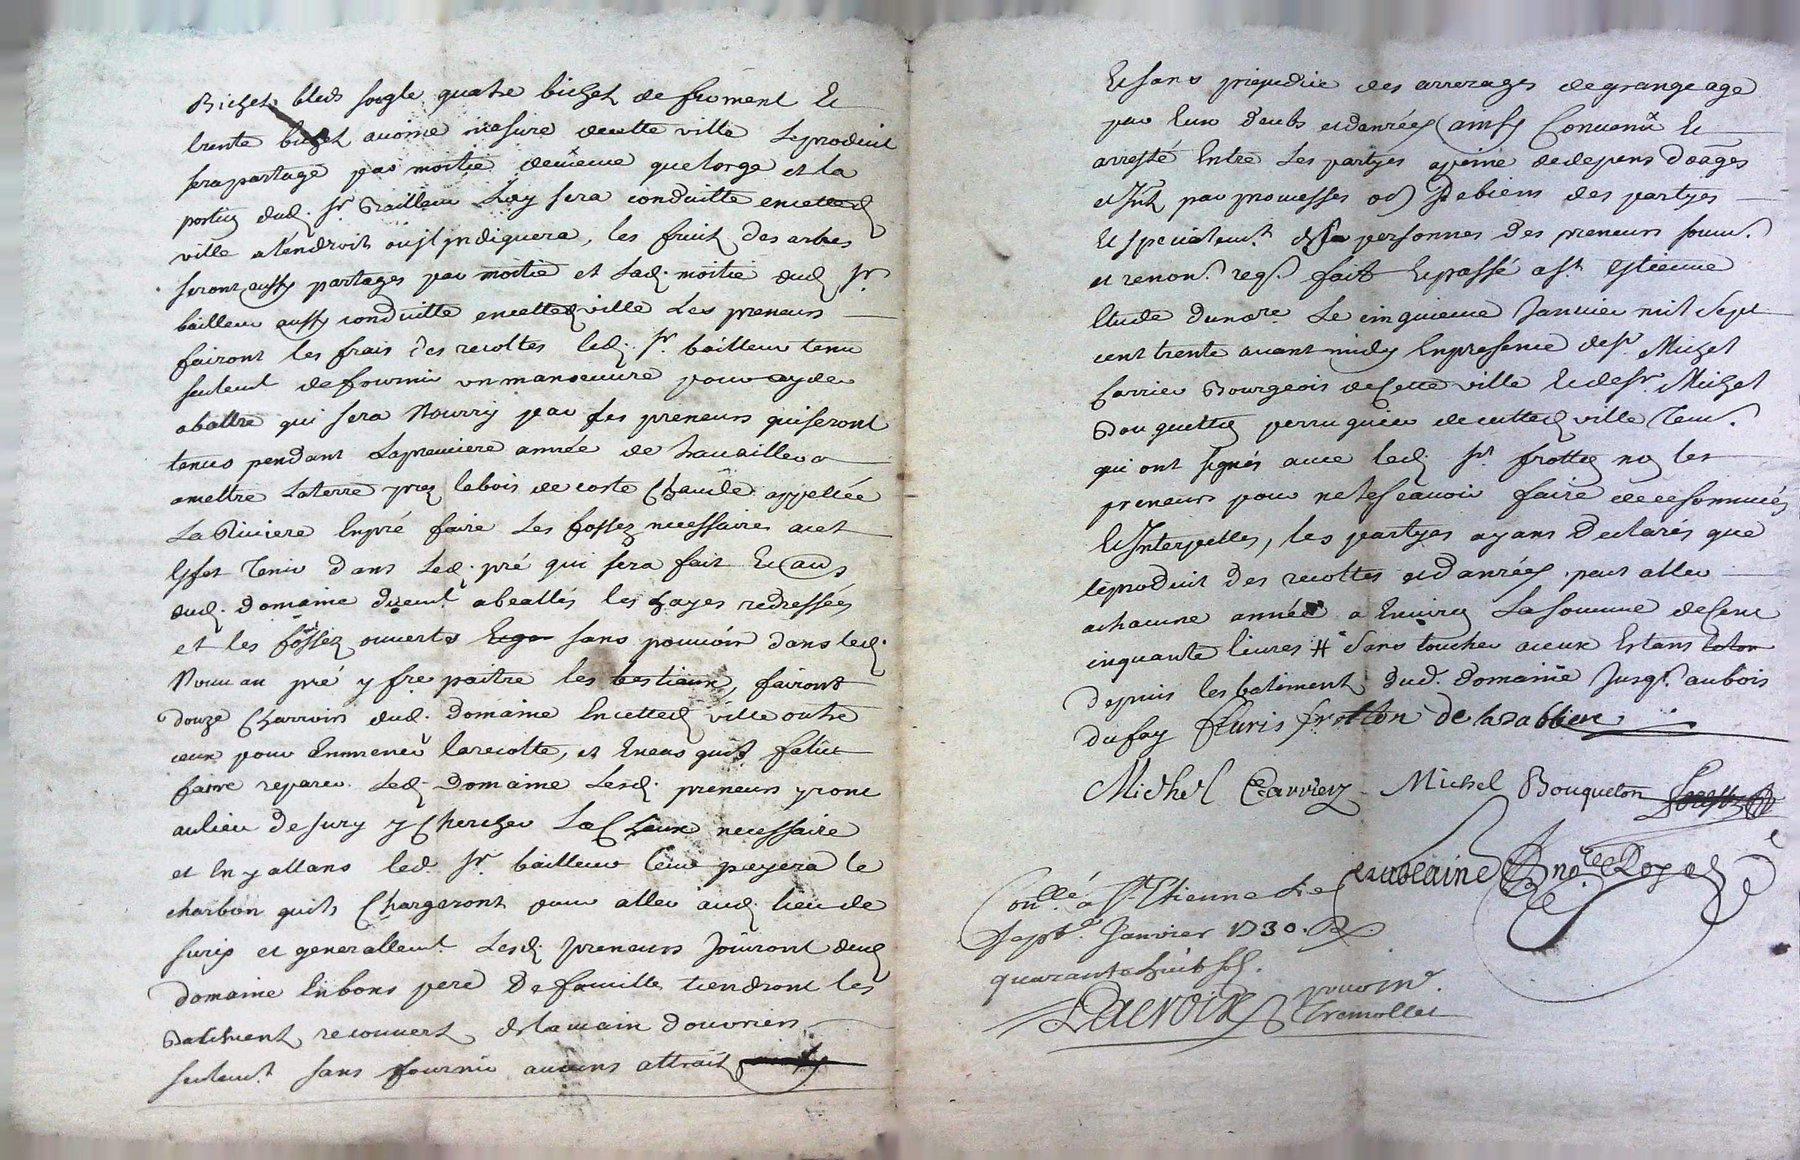 Bichets bleds soigle quatre bichet de froment Et
trente bichet avoine mesure decette ville Leproduit
serapartagé par moitié demême quelorge et la
portion dud. sr Bailleur Luy sera conduitte encetted
ville alendroit ouil jndiquera, les fruit des arbres
seront aussy partagés par moitié et Lad. moitié dud sr
bailleur aussy conduitte encetted ville Les preneurs
fairont les frais des recoltes led. sr. bailleur tenu
seulemt defournir un manoeuvre pour ayder
abattre qui sera Nourry par les preneurs quiseront
tenus pendant Lapremiere année de travailler
amettre Laterre prez lebois de coste Chaude appellée
La Riviere Enpré faire Les fossez necessaires acet
Effet Tenir dans Led. pré qui sera fait Et au
dud. Domaine duemt abeallés les hayes redressées
et les fossez ouverts sans pouvoir dans led.
Nouveau pré y fre paitre les bestiaux, fairont
douze Charrois dud. Domaine Encetted ville outre
ceux pour Emmener larecolte, et Encas quil fallut
faire reparer Led. Domaine Lesd. preneurs yront
aulieu de sury y Chercher La Chaux necessaire
et En y allans led. sr. bailleur leur payera le
charbon quils Chargeront pour aller aud. lieu de
surix et generallemt Lesd. preneurs Joüiront dud
domaine Enbons pere De famille tiendront les
Batiment recouvert de la main douvriers
seulemt. sans fournir aucuns attrait
Et sans prejudice des arrerages degrangeage
par Eux deubs et danrées ainsy Convenu Et
arresté Entre Les partyes apeine de depens doâges
et Jnts par promesses obd De biens des partyes
Et specialemt. des personnes Des preneurs soum.
et renon. reqs. fait Et passé a St. Estienne
Etude dunore. Le cinquieme Janvier mil sept
cent trente avant midy Enpresence de sr. Michel
Carrier Bourgeois de Cette ville Et de sr. Michel
Bouquetton perruquier de cetted ville Tem.
qui ont signés avec led. sr frotton non les
preneurs pour ne le scavoir faire de ce sommées
Et Interpellés, les partyes ayans Declarés que
leproduit Des recoltes et danrées peut aller
achacune année a Environ La somme de Cent
cinquante livres # sans toucher aceux Estans
depuis les batiment dud. Domaine Jusqs. aubois
du fay fleuris frotton de la Sabliere
Michel Carrier Michel Bouqueton
Chablaine no.re Royal
Conllé a St Etienne Le
sept.e Janvier 1730. R
quarante huit sols.
Delacroix pour mr.
Tremollet